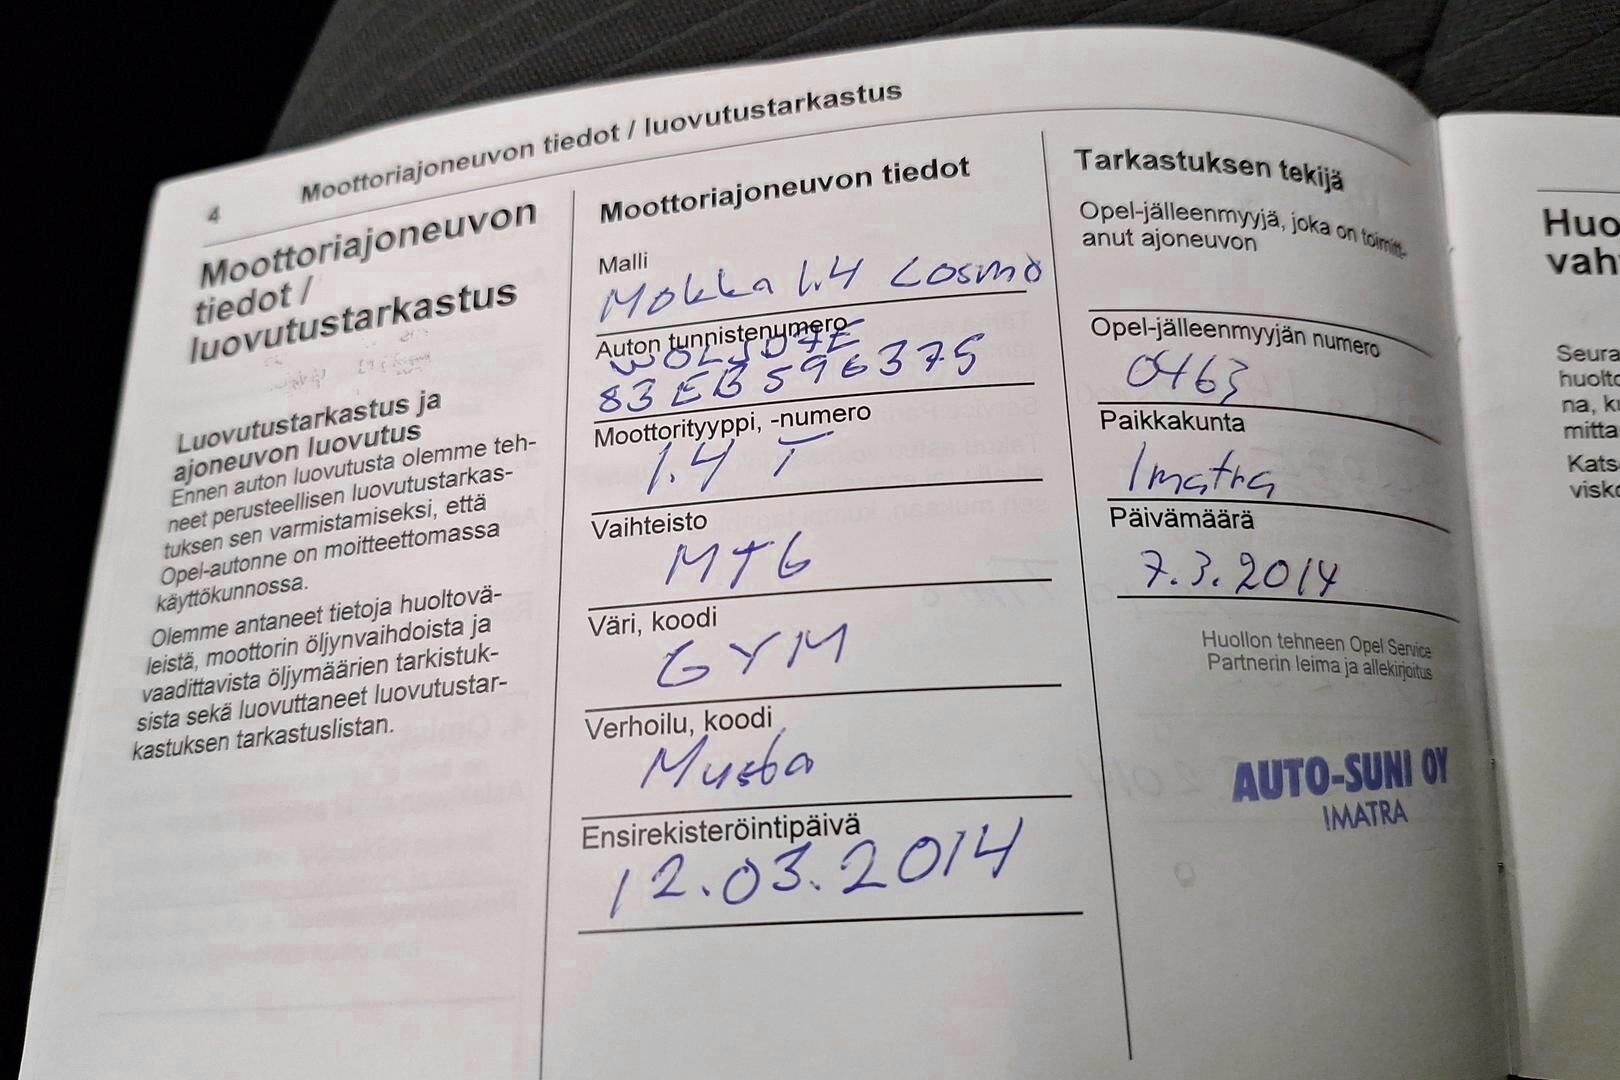 4
Moottoriajoneuvon tiedot / luovutustarkastus
Moottoriajoneuvon
tiedot /
luovutustarkastus
Luovutustarkastus ja
ajoneuvon luovutus
Ennen auton luovutusta olemme teh-
neet perusteellisen luovutustarkas-
tuksen sen varmistamiseksi, että
Opel-autonne on moitteettomassa
käyttökunnossa.
Olemme antaneet tietoja huoltovä-
leistä, moottorin öljynvaihdoista ja
vaadittavista öljymäärien tarkistuk-
sista sekä luovuttaneet luovutustar-
kastuksen tarkastuslistan.
Moottoriajoneuvon tiedot
Malli
Mokka 1.4 Cosmo
Auton tunnistenumero
W0LJD7E
83EB596375
Moottorityyppi, -numero
1.4 T
Vaihteisto
MT6
Väri, koodi
GYM
Verhoilu, koodi
Musta
Ensirekisteröintipäivä
12.03.2014
Tarkastuksen tekijä
Opel-jälleenmyyjä, joka on toimitt-
anut ajoneuvon
Opel-jälleenmyyjän numero
0463
Paikkakunta
Imatra
Päivämäärä
7.3.2014
Huollon tehneen Opel Service
Partnerin leima ja allekirjoitus
AUTO-SUNI OY
IMATRA
Huo
vah
Seura
huolto
na, ku
mitta
Kats
visko